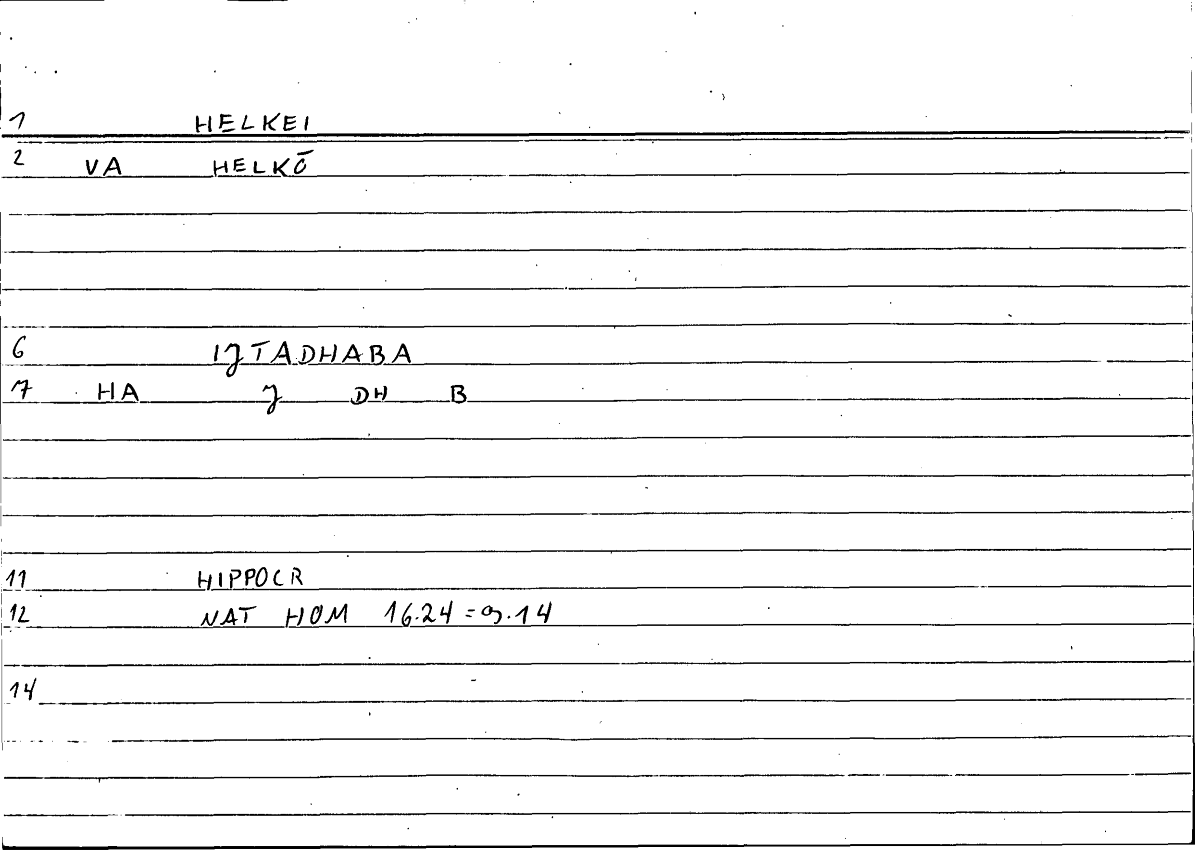 1 HELKEI
2 VA HELKŌ
6 IJTADHABA
7 HA J DH B
11 HIPPOCR
12 NAT HOM 16.24 = 9.14
14